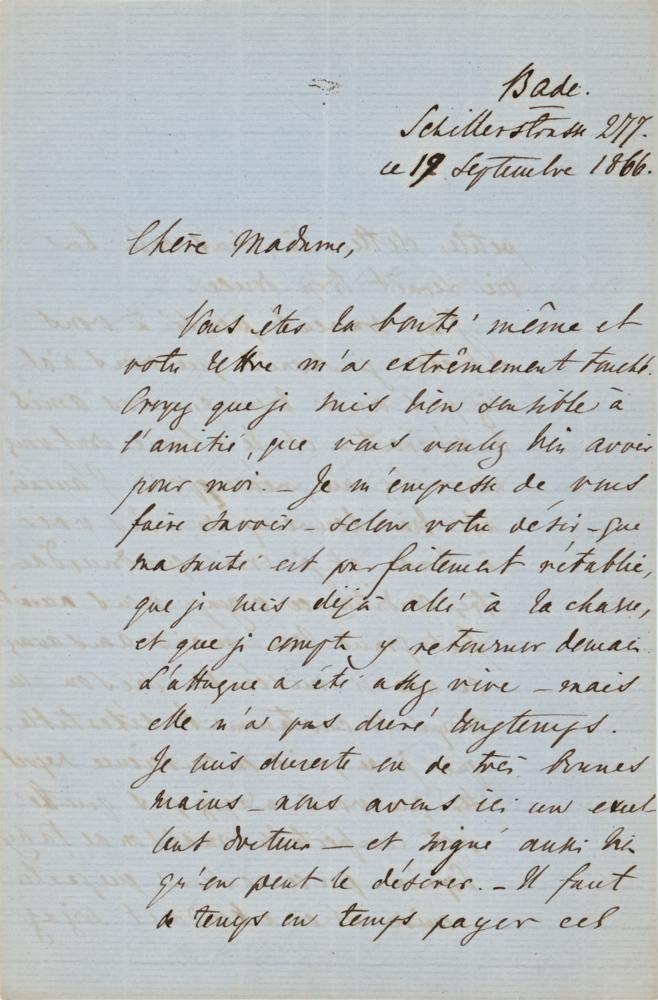 Bade.
Schillerstrasse 277.
ce 19 Septembre 1866.
Chère Madame,
Vous êtes la bonté même et
votre lettre m'a extrêmement touché.
Croyez que je suis bien sensible à
l'amitié, que vous voulez bien avoir
pour moi. – Je m'empresse de vous
faire savoir – selon votre désir – que
ma santé est parfaitement rétablie,
que je suis déjà allé à la chasse,
et que je compte y retourner demain.
L'attaque a été assez vive – mais
elle n'a pas duré longtemps.
Je suis du reste en de très bonnes
mains – nous avons ici un excel
lent docteur – et soigné aussi bien
qu'on peut le désirer. – Il faut
de temps en temps payer ces